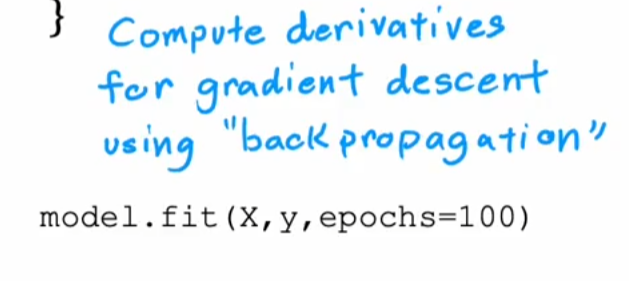 } Compute derivatives
for gradient descent
using "back propagation"
model.fit(X,y,epochs=100)